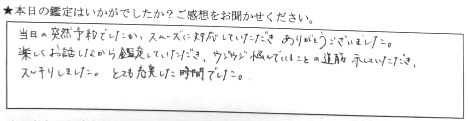 ★本日の鑑定はいかがでしたか？ご感想をお聞かせください。
当日の突然予約でしたが、スムーズに対応していただき ありがとうございました。
楽しくお話しながら鑑定していただき、ウジウジ悩んでいることの道筋 示していただき、
スッキリしました。とても充実した時間でした。